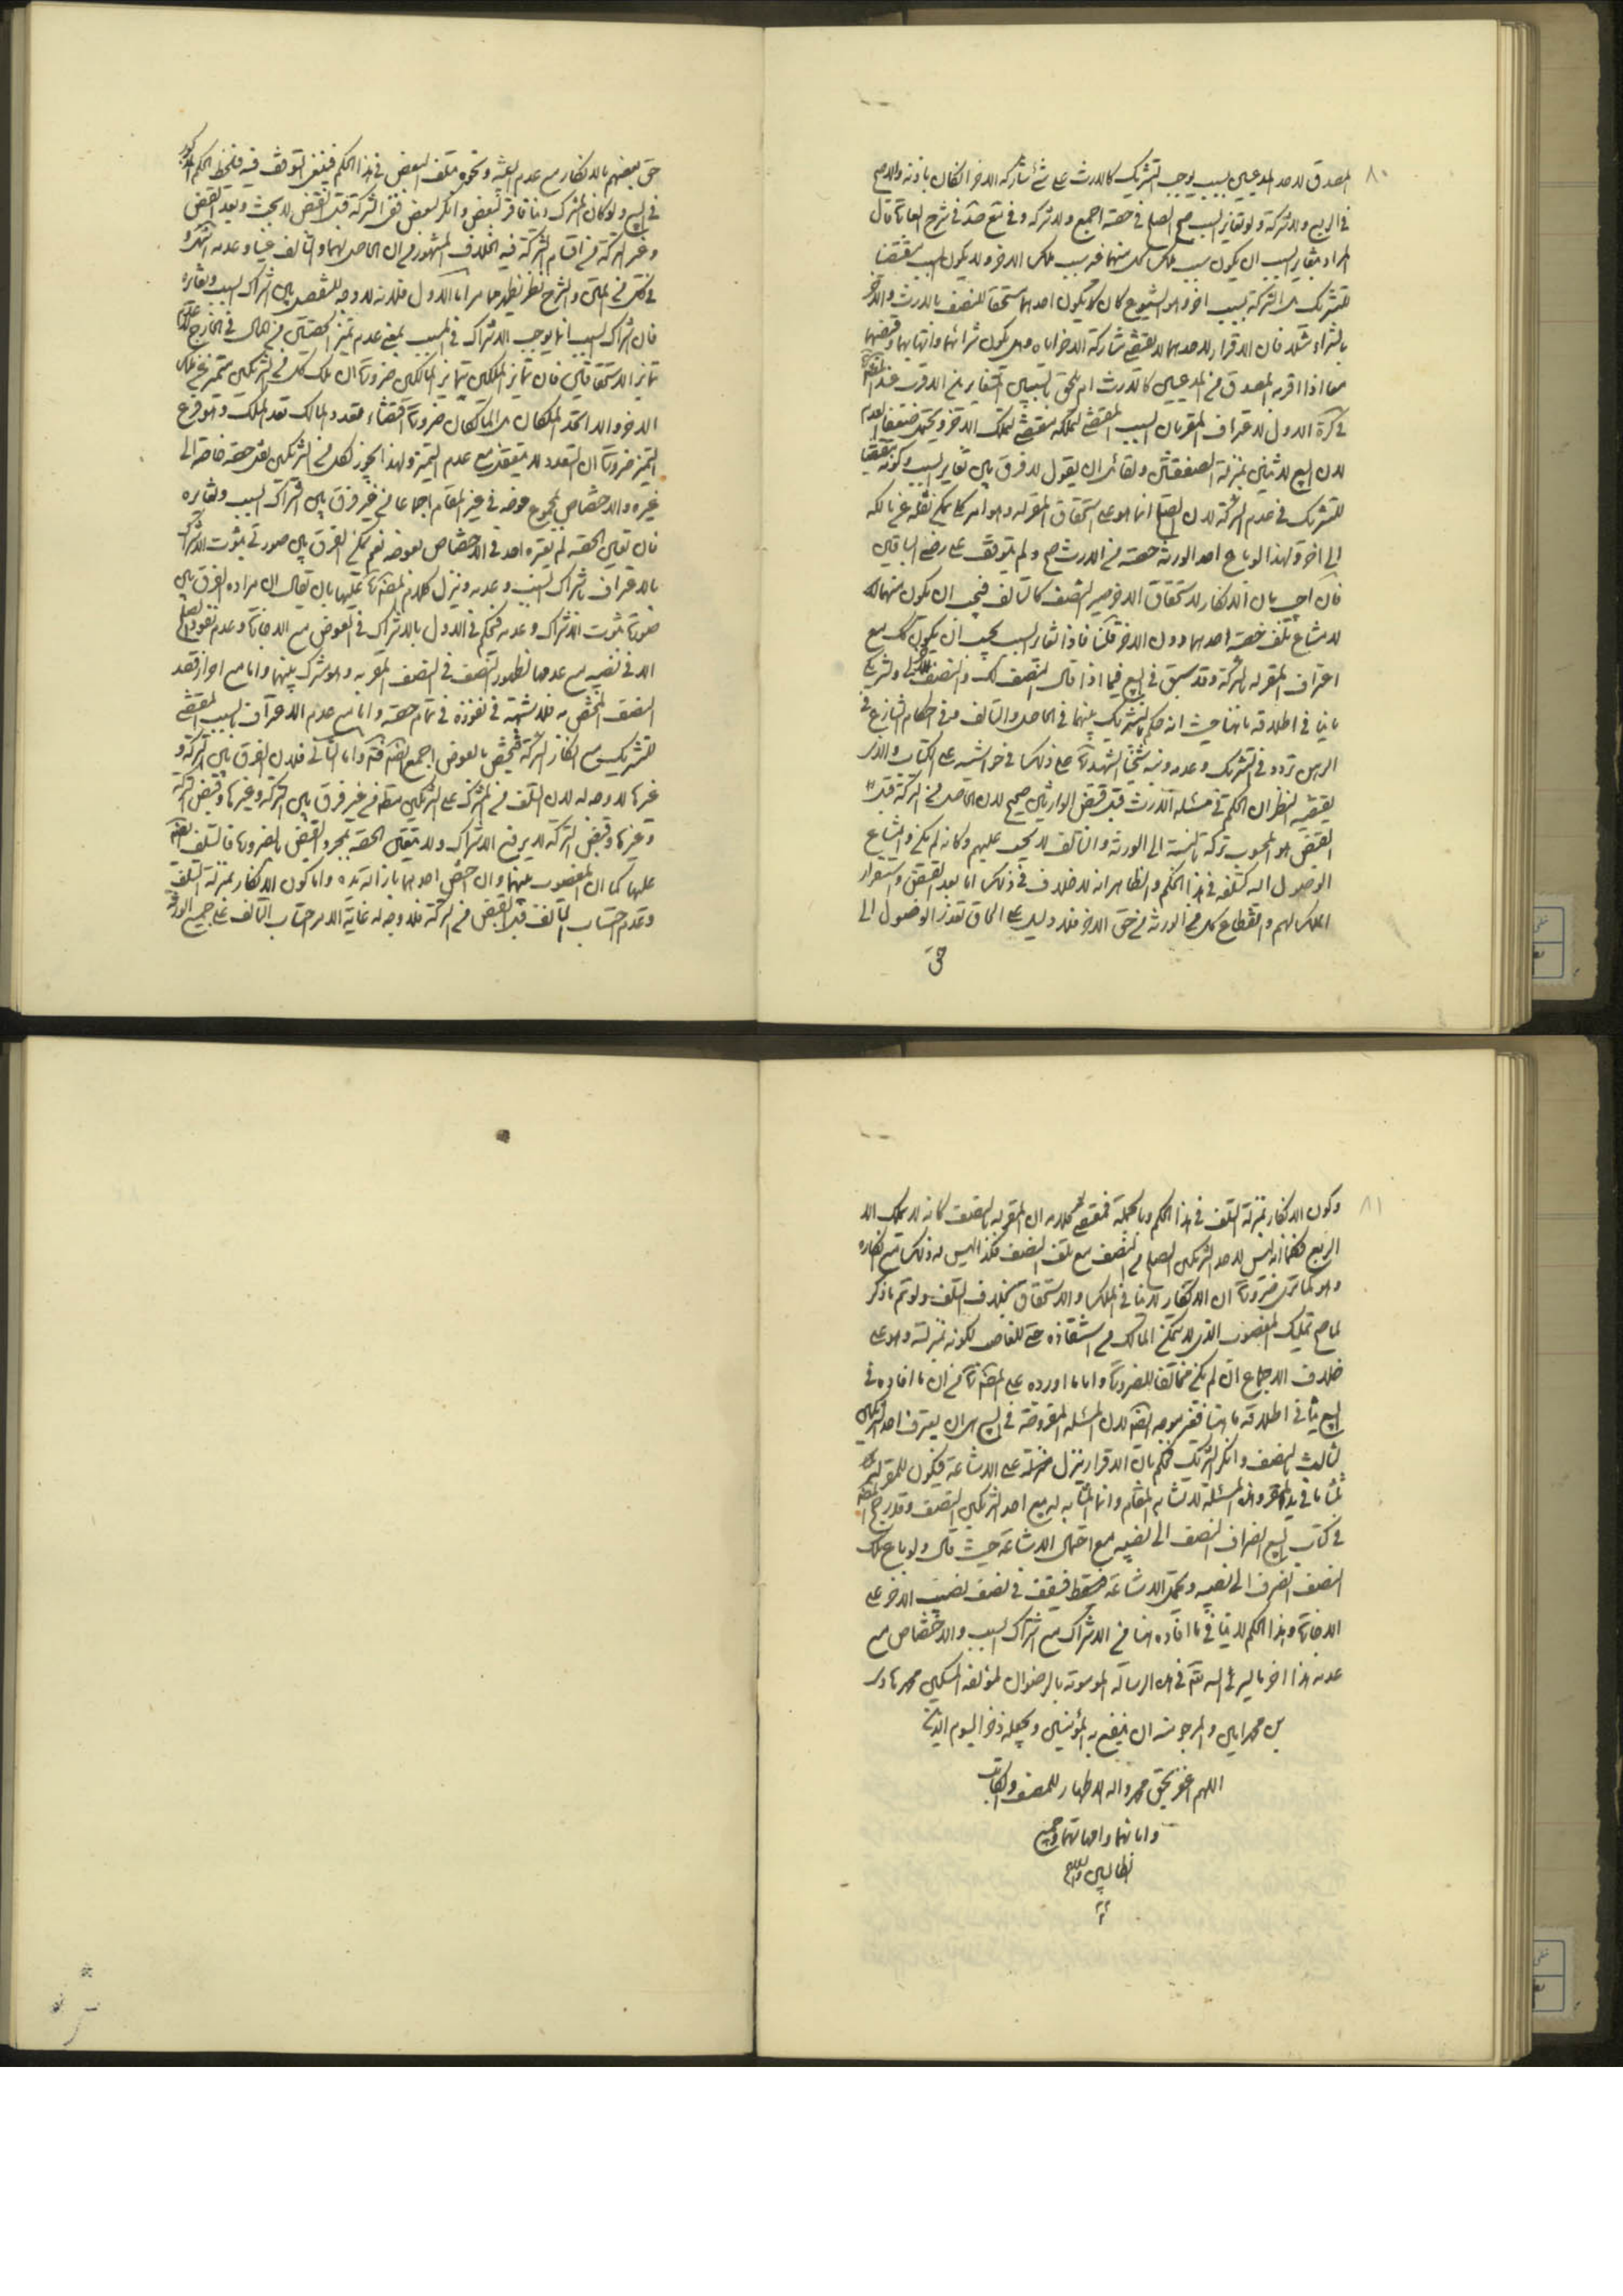 ٨٠
المصدق لاحد المدعيين بسبب يوجب التشريك كالارث على شئ شاركه الاخر ان كان باذنه والا صح
في الربع ولا شركة ولو تغاير السبب صح الصلح في حصته اجمع ولا شركة وفي شرح
المراد بتغاير السبب ان يكون سبب ملك كل منهما غير سبب ملك الاخر ولا يكون السبب مقتضيا
للتشريك الشركة بسبب اخر وهو الشيوع كان يكون احدهما مستحقا للنصف بالارث والاخر
بالشراء مثلا فان الاقرار لاحدهما لا يقتضي مشاركة الاخر اياه
معا اذا اقر به المصدق من المدعيين كالارث ام يلحق بالسببين المتغايرين الاقرب عند
في كرة الاول لاعتراف المقر بان السبب المقتضي لتملكه مقتض لتملك الاخر ويحتمل ضعيفا العدم
لان البيع لاثنين بمنزلة الصفقتين ولقائل ان يقول لا فرق بين تغاير السبب وكونه مقتضيا
للتشريك في عدم الشركة لان الصلح انما هو على استحقاق المقر له وهو امر كلي يمكن نقله عن مالكه
الى اخر ولهذا لو باع احد الورثة حصته من الارث صح ولم يتوقف على رضى الباقين
فان اجيب بان الانكار لاستحقاق الاخر صير النصف كالتالف فيجب ان يكون منهما
لامتناع تلف حصة احدهما دون الاخر قلنا فاذا تغاير السبب يجب ان يكون كك مع
اعتراف المقر له بالشركة وقد سبق في البيع فيما اذا قال النصف لك والنصف
ينافي اطلاقه ما هنا حيث انه حكم بالتشريك بينهما في الحاصل والتالف وفي احكام التنازع في
الرهن تردد في التشريك وعدمه ونبه شيخنا الشهيد على ذلك في حواشيه على الكتاب والذي
يقتضيه النظر ان الحكم في مسئلة الارث قبل قبض الوارثين صحيح لان الحاصل من التركة قبل
القبض هو المحسوب تركة بالنسبة الى الورثة والتالف لا يحسب عليهم وكانه لم يكن وامتناع
الوصول اليه كتلفه في هذا الحكم والظاهر انه لا خلاف في ذلك اما بعد القبض واستقرار
الملك لهم وانقطاع كل من الورثة عن حق الاخر فلا دليل على الحاق تعذر الوصول الى
حق
حق بعضهم بالانكار مع عدم البينة ونحوه بتلف البعض في هذا الحكم فينبغي التوقف فيه فليلحظ الحكم المذكور
في البيع ولو كان المشترك دينا فاقر لبعض وانكر لبعض ففي التركة قبل القبض لا بحث وبعد القبض
وغير التركة من اقسام الشركة فيه الخلاف المشهور في ان الحاصل لهما والتالف عنهما وعدمه
في كل من المتن والشرح نظر يظهر مما مر اما الاول فلانه لا وجه للتفصيل بين اشتراك السبب وتغايره
فان اشتراك السبب انما يوجب الاشتراك في المسبب بمعنى عدم تميز الحصتين في الحال في الخارج
تمايز الاستحقاقين فان تمايز الملكين بتمايز المالكين ضرورة ان ملك كل من الشريكين متميز عن ملك
الاخر والا اتحد الملكان المالكان ضرورة اقتضاء تعدد المالك تعدد الملك وهو فرع
التميز ضرورة ان التعدد لا يتعقل مع عدم التميز ولهذا يجوز لكل من الشريكين نقل حصته خاصة الى
غيره والاختصاص بمجموع عوضه في غير المقام اجماعا من غير فرق بين اشتراك السبب وتغايره
فان تعاين الحصة لم يعتبره احد في الاختصاص بعوضه نعم يمكن الفرق بين صورتي ثبوت الاشتراك
بالاعتراف باشتراك السبب وعدمه وينزل كلام عليها بان يقال ان مراده الفرق بين
صورة ثبوت الاشتراك وعدمه فيحكم في الاول بالاشتراك في العوض مع الاجازة وعدم نفوذ الصلح
الا في نصيبه مع عدمها لظهور النصف في النصف المقر به وهو مشترك بينهما واما مع ارادة قصد
النصف المختص به فلا شبهة في نفوذه في تمام حصته واما مع عدم الاعتراف بالسبب المقتضي
للتشريك مع انكار الشركة فيختص بالعوض اجمع واما الثاني فلان الفرق بين التركة و
غيرها لا وجه له لان التلف من المشترك على الشريكين مطلقا من غير فرق بين التركة وغيرها وقبض التركة
وغيرها وقبض التركة لا يرفع الاشتراك ولا يتعين الحصة بمجرد القبض بالضرورة فالتلف
عليهما كما ان المغصوب بينهما وان اختص احدهما بازالة يده واما كون الانكار بمنزلة التلف
وعدم احتساب التالف قبل القبض من التركة فلا وجه له غاية الامر احتساب التالف على جميع الورثة
٨١
وكون الانكار بمنزلة التلف في هذا الحكم وبالجملة فمقتضى كلامه ان المقر به بالنصف كانه لا يملك الا
الربع فكما انه ليس لاحد الشريكين الصلح في النصف مع تلف النصف فكذا ليس له ذلك مع انكاره
وهو كما ترى ضرورة ان الانكار لا ينافي الملك والاستحقاق بخلاف التلف ولو تم ما ذكر
لما صح تمليك المغصوب الذي لا يتمكن المالك من استنقاذه حتى للغاصب لكونه بمنزلته وهو على
خلاف الاجماع ان لم يكن مخالفا للضرورة واما ما اورده على من ان ما افاده في
البيع ينافي اطلاقه ما هنا فغير موجه لان المسئلة المفروضة في البيع هي ان يعترف احد الشريكين
لثالث بالنصف وانكر الشريك فحكم بان الاقرار ينزل على الاشاعة فيكون للمقر له
ثلثا ما في يد المقر وهذه المسئلة لا تشابه المقام وانما المشابه له بيع احد الشريكين النصف وقد رجح
في كتاب البيع انصراف النصف الى نصيبه مع احتمال الاشاعة حيث قال ولو باع مالك
النصف انصرف الى نصيبه ويحتمل الاشاعة فيقف في نصف نصيب الاخر على
الاجازة وهذا الحكم لا ينافي ما افاده هنا من الاشتراك مع اشتراك السبب والاختصاص مع
عدمه هذا اخر ما يسر لي الله في هذه الرسالة الموسومة بالرضوان لمؤلفه المسكين محمد هادي
بن محمد امين والمرجو منه ان ينفع به المؤمنين ويجعله ذخرا ليوم الدين
اللهم اغفر بحق محمد واله الاطهار للمصنف والكاتب
وابائهما وامهاتهما وجميع
الطالبين